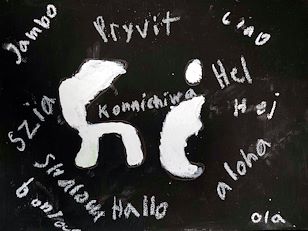 Jambo
Pryvit
Ciao
Hel
Hej
Szia
Konnichiwa
hi
aloha
Hallo
ola